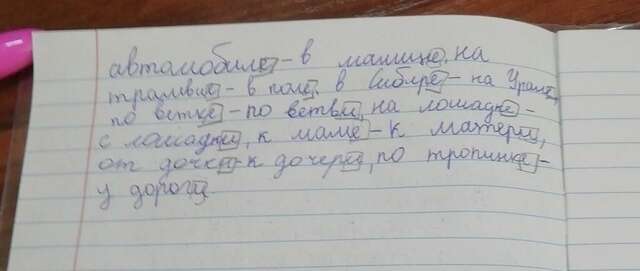 автомобиле - в машине, на
трамвае - в поле, в Сибири - на Урале,
по ветке - по ветви, на лошадке -
с лошадки, к маме - к матери,
от дочки - к дочери, по тропинке -
у дороги.